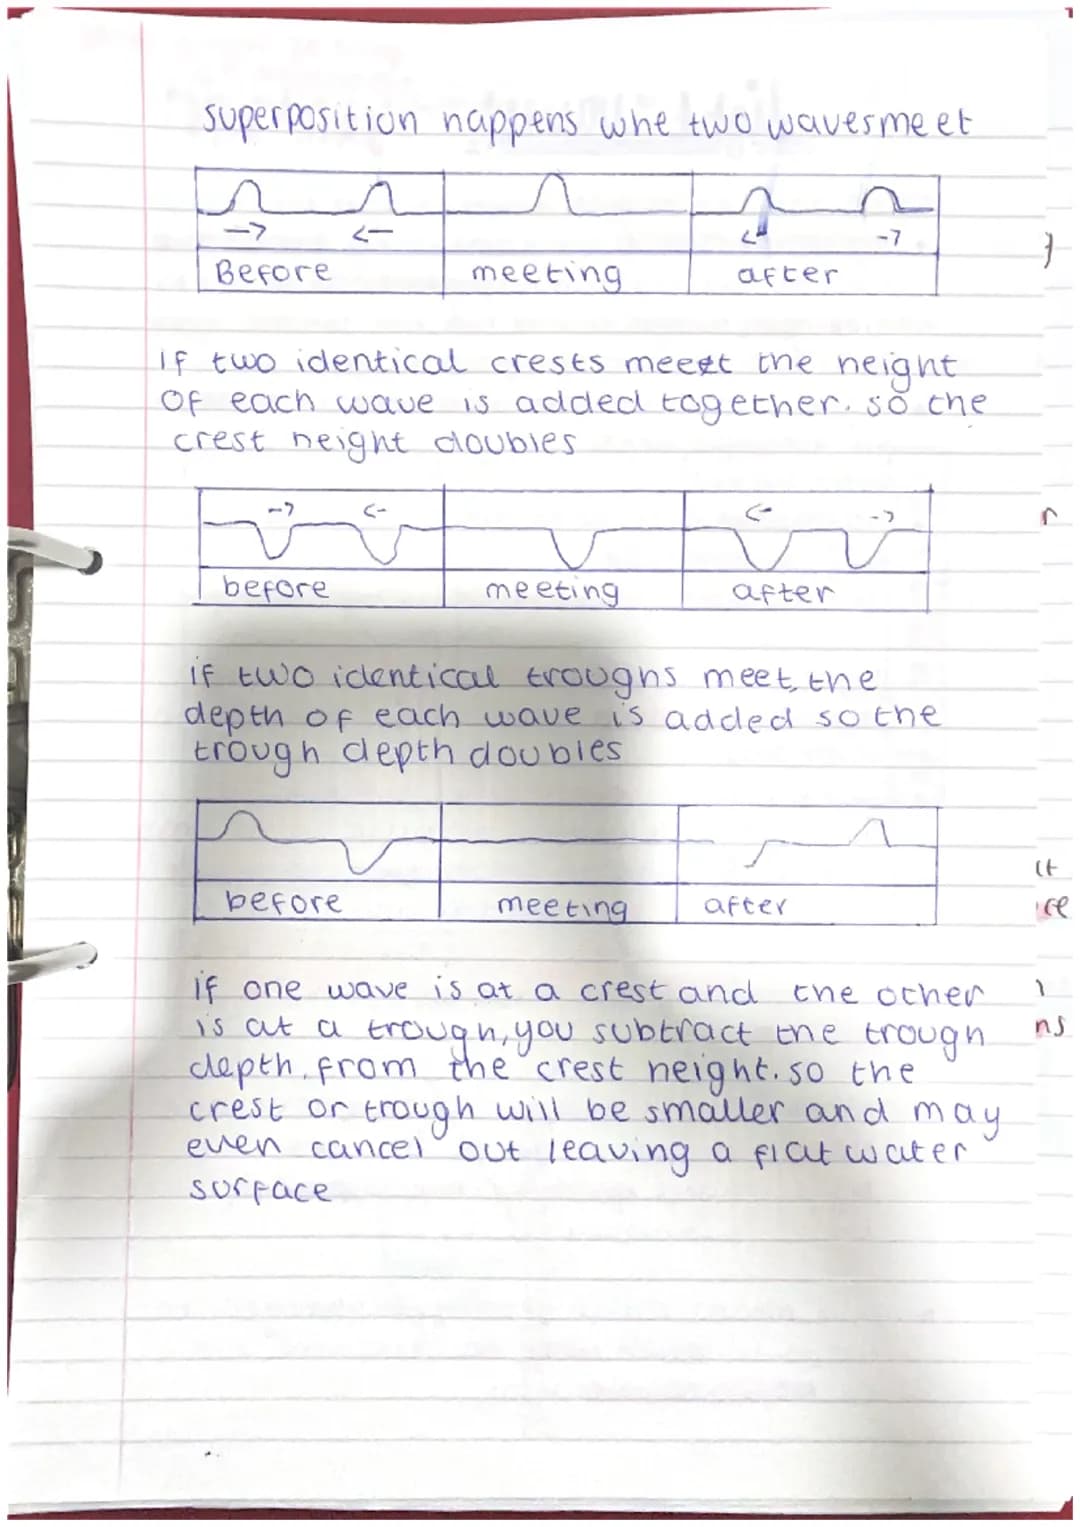 superposition happens whe two waves meet
-> <- <- ->
Before meeting after
if two identical crests meeet the height
of each wave is added together. so the
crest height doubles
-> <- <- ->
before meeting after
if two identical troughs meet, the
depth of each wave is added so the
trough depth doubles
before meeting after
if one wave is at a crest and the other
is at a trough, you subtract the trough
depth. from the crest height. so the
crest or trough will be smaller and may
even cancel out leaving a flat water
surface
r
it
ns